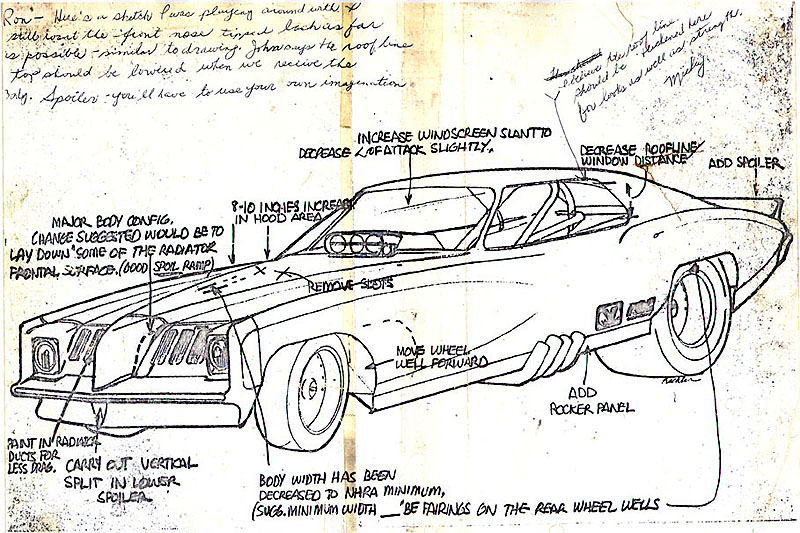 Ron - Here's a sketch I was playing around with &
still want the front nose tipped back as far
as possible - similar to drawing. John says the roof line
top should be lowered when we receive the
body. Spoiler - you'll have to use your own imagination.
receive the roof line
should be flattened here
for looks as well as strength.
Micky
INCREASE WINDSCREEN SLANT TO
DECREASE < OF ATTACK SLIGHTLY.
DECREASE ROOFLINE/
WINDOW DISTANCE
ADD SPOILER
8-10 INCHES INCREASE
IN HOOD AREA
MAJOR BODY CONFIG.
CHANGE SUGGESTED WOULD BE TO
"LAY DOWN" SOME OF THE RADIATOR
FRONTAL SURFACE. (GOOD SPOIL RAMP)
REMOVE SLOTS
MOVE WHEEL
WELL FORWARD
ADD
ROCKER PANEL
PAINT IN RADIATOR
DUCTS FOR
LESS DRAG.
CARRY OUT VERTICAL
SPLIT IN LOWER
SPOILER
BODY WIDTH HAS BEEN
DECREASED TO NHRA MINIMUM,
(SUGG. MINIMUM WIDTH __" BE FAIRINGS ON THE REAR WHEEL WELLS